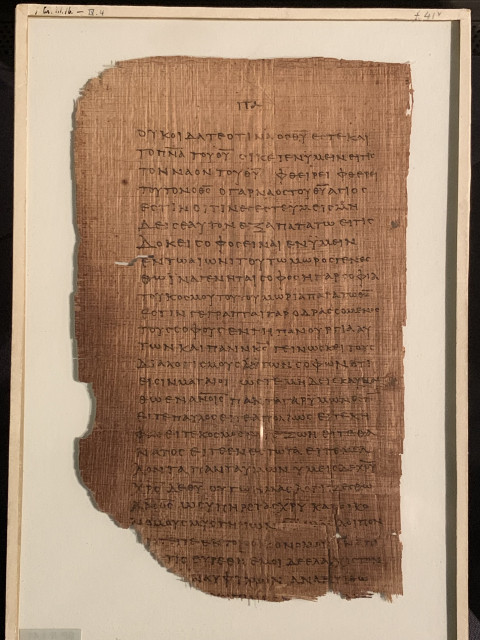 ΟΥΚ ΟΙΔΑΤΕ ΟΤΙ ΝΑΟΣ ΘΥ ΕΣΤΕ ΚΑΙ
ΤΟ ΠΝΑ ΤΟΥ ΘΥ ΟΙΚΕΙ ΕΝ ΥΜΕΙΝ ΕΙ ΤΙΣ
ΤΟΝ ΝΑΟΝ ΤΟΥ ΘΥ ΦΘΕΙΡΕΙ ΦΘΕΡΕΙ
ΤΟΥΤΟΝ Ο ΘΣ Ο ΓΑΡ ΝΑΟΣ ΤΟΥ ΘΥ ΑΓΙΟΣ
ΕΣΤΙΝ ΟΙΤΙΝΕΣ ΕΣΤΕ ΥΜΕΙΣ ΜΗ
ΔΕΙΣ ΕΑΥΤΟΝ ΕΞΑΠΑΤΑΤΩ ΕΙ ΤΙΣ
ΔΟΚΕΙ ΣΟΦΟΣ ΕΙΝΑΙ ΕΝ ΥΜΕΙΝ
ΕΝ ΤΩ ΑΙΩΝΙ ΤΟΥΤΩ ΜΩΡΟΣ ΓΕΝΕΣ
ΘΩ ΙΝΑ ΓΕΝΗΤΑΙ ΣΟΦΟΣ Η ΓΑΡ ΣΟΦΙΑ
ΤΟΥ ΚΟΣΜΟΥ ΤΟΥΤΟΥ ΜΩΡΙΑ ΠΑΡΑ ΤΩ
ΕΣΤΙΝ ΓΕΓΡΑΠΤΑΙ ΓΑΡ Ο ΔΡΑΣΣΟΜΕΝΟΣ
ΤΟΥΣ ΣΟΦΟΥΣ ΕΝ ΤΗ ΠΑΝΟΥΡΓΙΑ ΑΥ
ΤΩΝ ΚΑΙ ΠΑΛΙΝ ΚΣ ΓΕΙΝΩΣΚΕΙ ΤΟΥΣ
ΔΙΑΛΟΓΙΣΜΟΥΣ ΤΩΝ ΣΟΦΩΝ ΟΤΙ
ΕΙΣΙΝ ΜΑΤΑΙΟΙ ΩΣΤΕ ΜΗΔΕΙΣ ΚΑΥΧΑΣ
ΘΩ ΕΝ ΑΝΟΙΣ ΠΑΝΤΑ ΓΑΡ ΥΜΩΝ
ΕΙΤΕ ΠΑΥΛΟΣ ΕΙΤΕ ΑΠΟΛΛΩΣ ΕΙΤΕ ΚΗ
ΦΑΣ ΕΙΤΕ ΚΟΣΜΟΣ ΕΙΤΕ ΖΩΗ ΕΙΤΕ ΘΑ
ΝΑΤΟΣ ΕΙΤΕ ΕΝΕΣΤΩΤΑ ΕΙΤΕ ΜΕΛ
ΛΟΝΤΑ ΠΑΝΤΑ ΥΜΩΝ ΥΜΕΙΣ ΔΕ ΧΡΥ
ΧΡΣ ΔΕ ΘΥ ΟΥΤΩΣ ΗΜΑΣ ΛΟΓΙΖΕΣΘΩ
ΑΝΟΣ ΩΣ ΥΠΗΡΕΤΑΣ ΧΡΥ ΚΑΙ ΟΙΚΟ
ΝΟΜΟΥΣ ΜΥΣΤΗΡΙΩΝ ΛΟΙΠΟΝ
ΤΟΙΣ ΟΙΚΟΝΟΜΟΙΣ
ΤΙΣ ΕΥΡΕΘΗ ΕΜΟΙ ΔΕ
ΑΝΑΚΡΙΘΩ